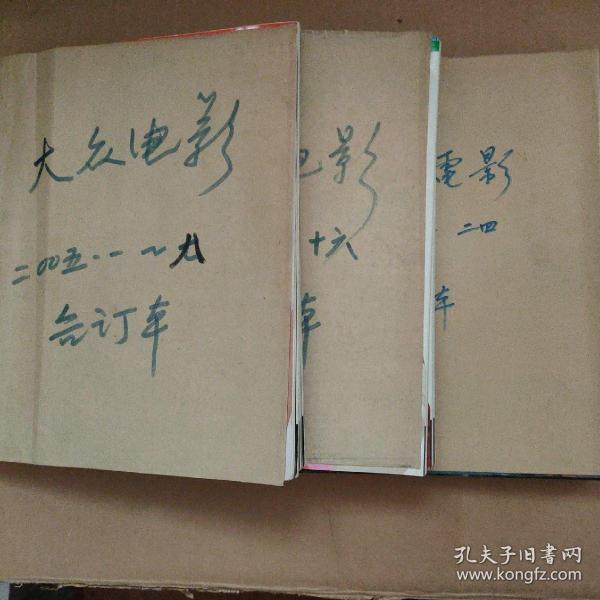 大众电影
二00五·一~九
合订本
电影
十六
本
電影
二四
本
孔夫子旧书网
www.kongfz.com